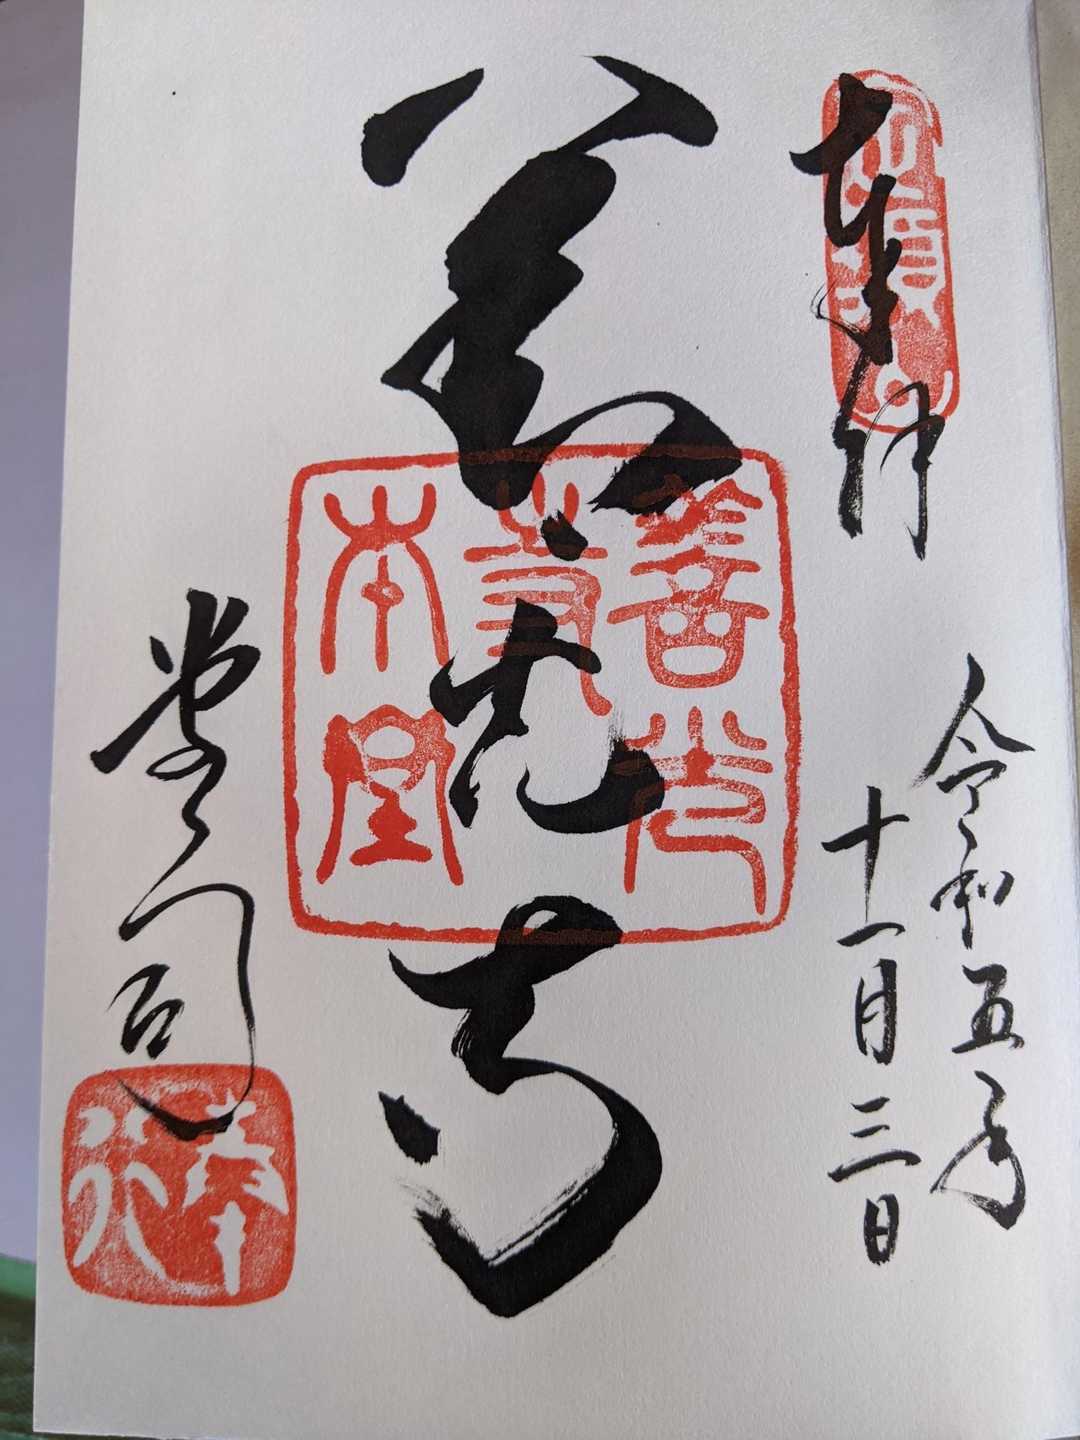 奉拝
令和五年
十一月三日
善光寺
善光
寺
本堂
堂司